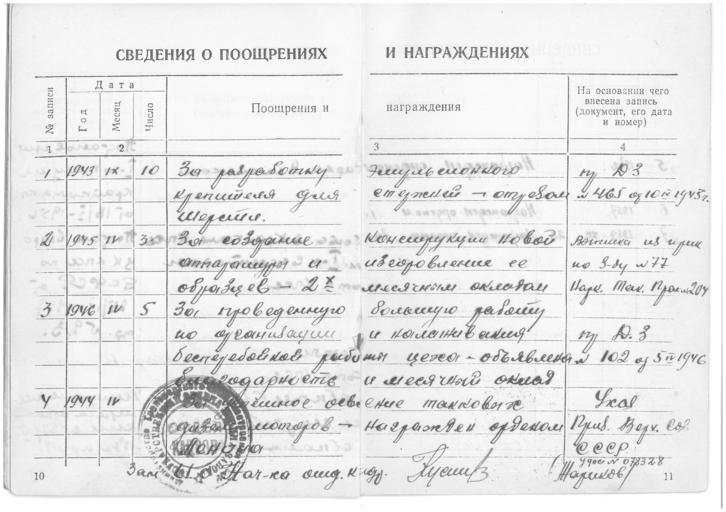 СВЕДЕНИЯ О ПООЩРЕНИЯХ И НАГРАЖДЕНИЯХ
№ записи
Дата
Год
Месяц
Число
Поощрения и награждения
На основании чего внесена запись (документ, его дата и номер)
1 2 3 4
1 1943 IX 10 За разработку эмульсионного пр. ДЗ
крепителя для стержней — отрезом № 465 от 10 IX 1943 г.
шерсти.
2 1945 IV 30 За создание конструкции новой из прик
аппаратуры и изготовление ее по З-ду № 77
образцов — 2х месячным окладом Нарк. Танк. Пром. № 204
3 1946 IV 5 За проведенную большую работу
по организации и налаживания пр. ДЗ
бесперебойной работы цеха — объявлена № 102 от 5 IV 1946
благодарность и месячный оклад
4 1944 IV За освоение танковых Указ
моторов — награжден орденом През. Верх. Сов.
Ленина СССР
Зам. Нач-ка отд. кадр.
10 11